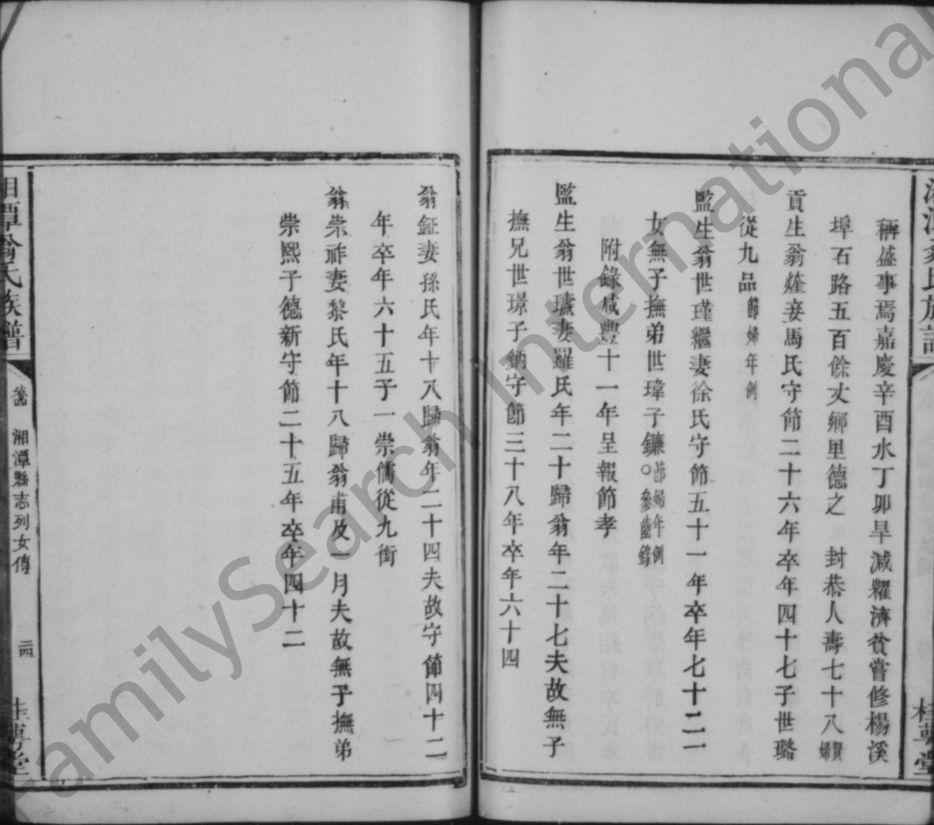 稱盛事焉嘉慶辛酉水丁卯旱減糶濟貧嘗修楊溪
埠石路五百餘丈鄉里德之 封恭人壽七十八賢婦
貢生翁薩妾馬氏守節二十六年卒年四十七子世璐
從九品節婦年例
監生翁世瑾繼妻徐氏守節五十一年卒年七十二一
女無子撫弟世瑋子鐮○節婦年例
附錄咸豐十一年呈報節孝
監生翁世璛妻羅氏年二十歸翁年二十七夫故無子
撫兄世璟子鈉守節三十八年卒年六十四
翁鉦妻孫氏年十八歸翁年二十四夫故守節四十二
年卒年六十五子一崇儒從九銜
翁崇祚妻黎氏年十八歸翁甫及一月夫故無子撫弟
崇熙子德新守節二十五年卒年四十二
湘潭翁氏族譜
湘潭縣志列女傳
桂萼堂
FamilySearch International